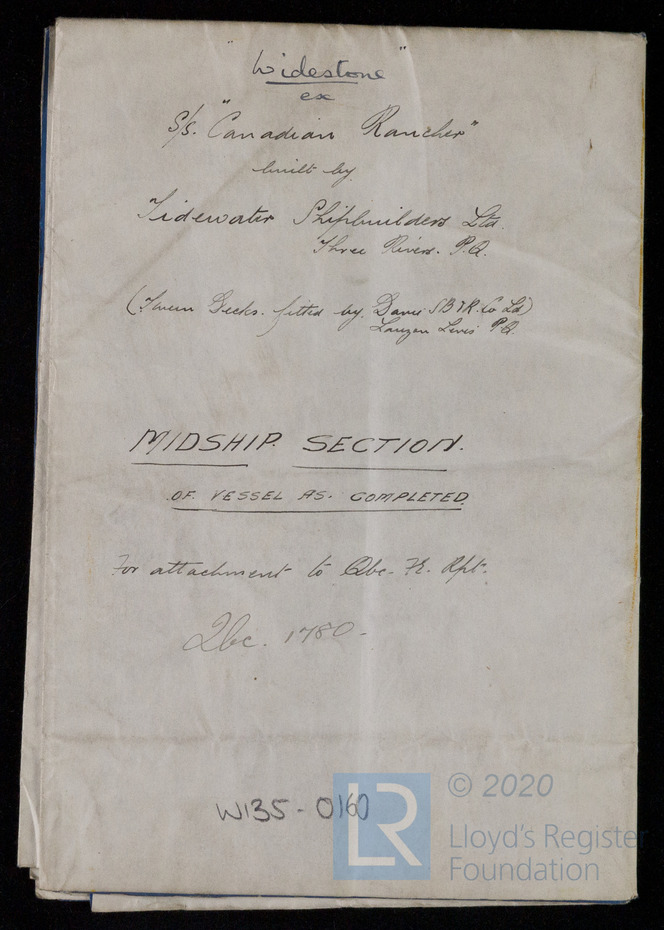 "Widestone"
ex
S/S. "Canadian Rancher"
built by
Tidewater Shipbuilders Ltd.
Three Rivers. P.Q.
(Tween Decks. fitted by. Davie S.B & R. Co Ld)
Lauzon Levis P.Q.
MIDSHIP. SECTION.
OF VESSEL AS. COMPLETED
For attachment to Qbc. F.E. Rpt.
Qbc. 1780.
W135-0160
LR
© 2020
Lloyd's Register
Foundation